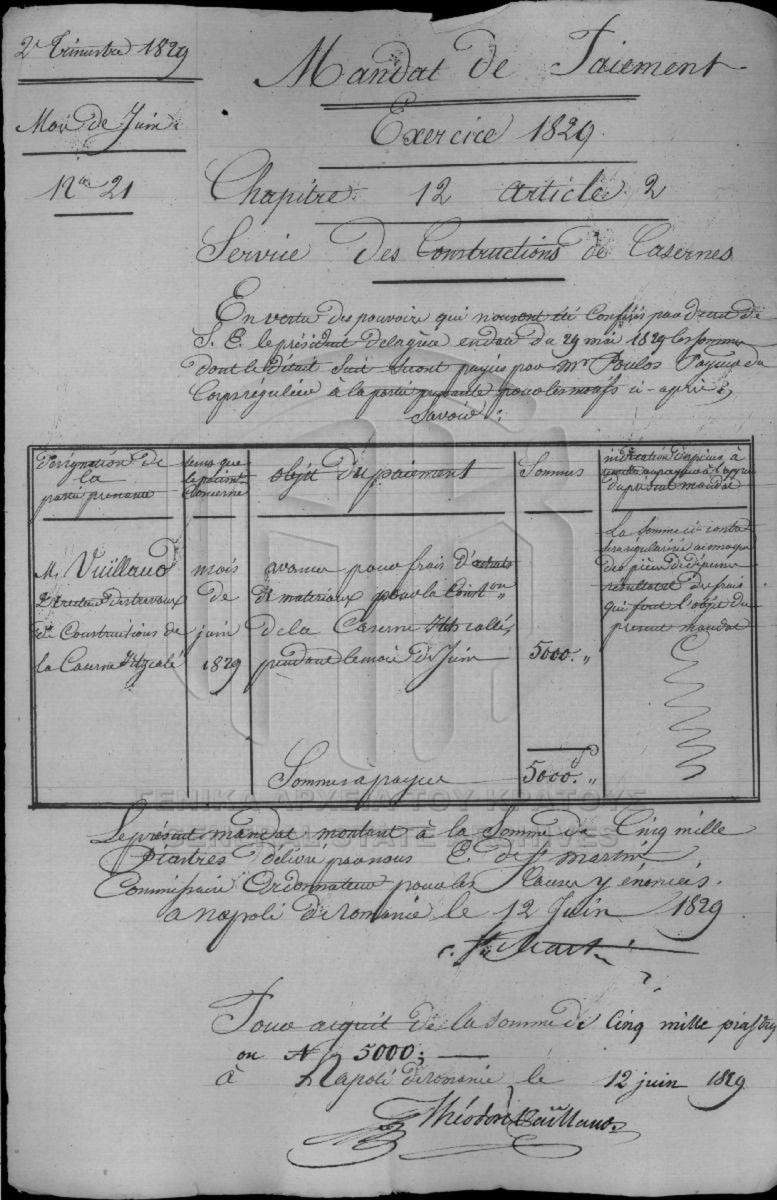 2e Trimestre 1829
Mois de Juin
No 21
Mandat de Paiement
Exercice 1829.
Chapitre 12 article 2
Service des Constructions de Casernes
En vertu des pouvoirs qui nous ont été Confiés par decret de
S. E. le président de la grèce en date du 29 mai 1829 les sommes
dont le détail suit seront payées par Mr Poulos Payeur du
Corps régulier à la partie prenante pour les motifs ci-après;
Savoir:
Désignation de la partie prenante
tems que le paiemt concerne
objet du paiement
Sommes
indication des pièces à remettre au payeur à l'appui du présent mandat
M. Vuillaud
Directeur des travaux
de Constructions de
la Caserne Itzcalé
mois
de
juin
1829
avance pour frais d'achats
de materiaux pour la Conston
de la Caserne Itch callés
pendant le mois de Juin
5000. "
La somme ci-contre
sera régularisée au moyen
des pièces de dépenses
résultant des frais
qui font l'objet du
présent mandat
Sommes à payer
5000. "
ΓΕΝΙΚΑ ΑΡΧΕΙΑ ΤΟΥ ΚΡΑΤΟΥΣ
GENERAL STATE ARCHIVES
Le présent mandat montant à la Somme de Cinq mille
Piastres délivré par nous C. de St martin
Commissaire Ordonnateur pour les Causes y énoncées.
a napoli de romanie le 12 Juin 1829
C. St Mart
Pour acquit de la somme de Cinq mille piastres
ou 5000;
à Napoli de romanie le 12 juin 1829
Théodore Vailland